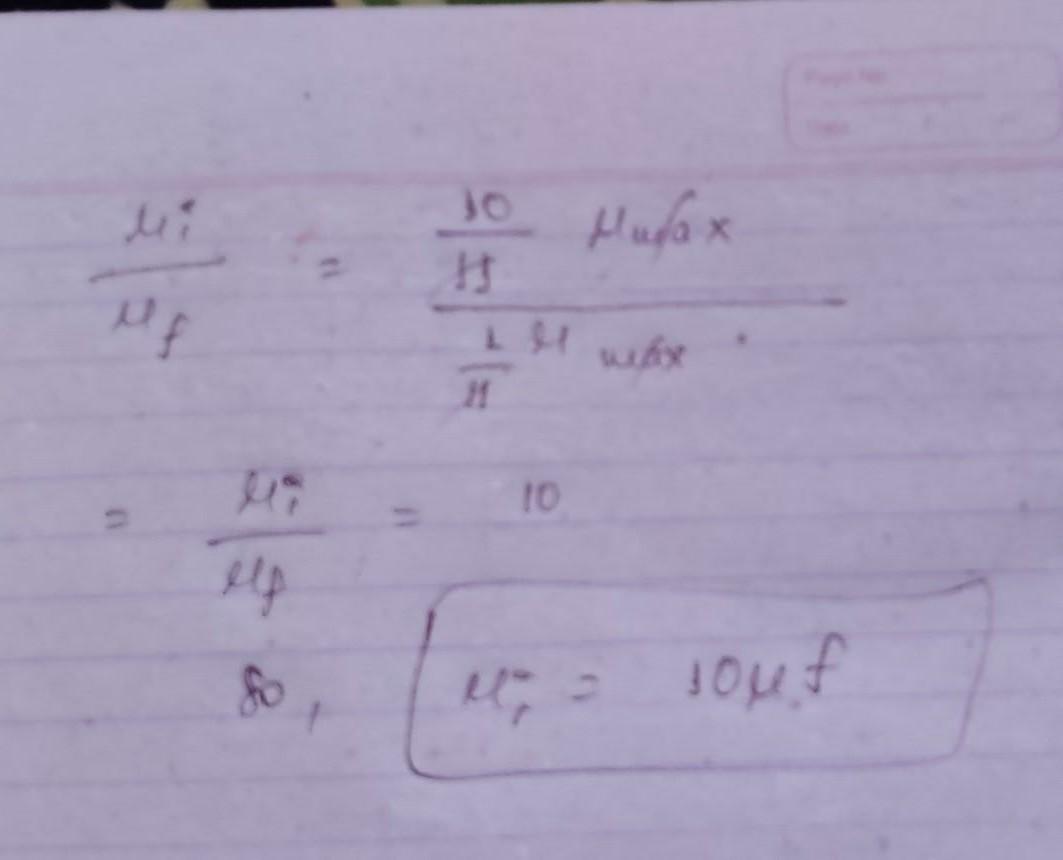 Page No.
Date
μi / μf = (10/11 μmax) / (1/11 μ max)
= μi / μf = 10
So, μi = 10μf